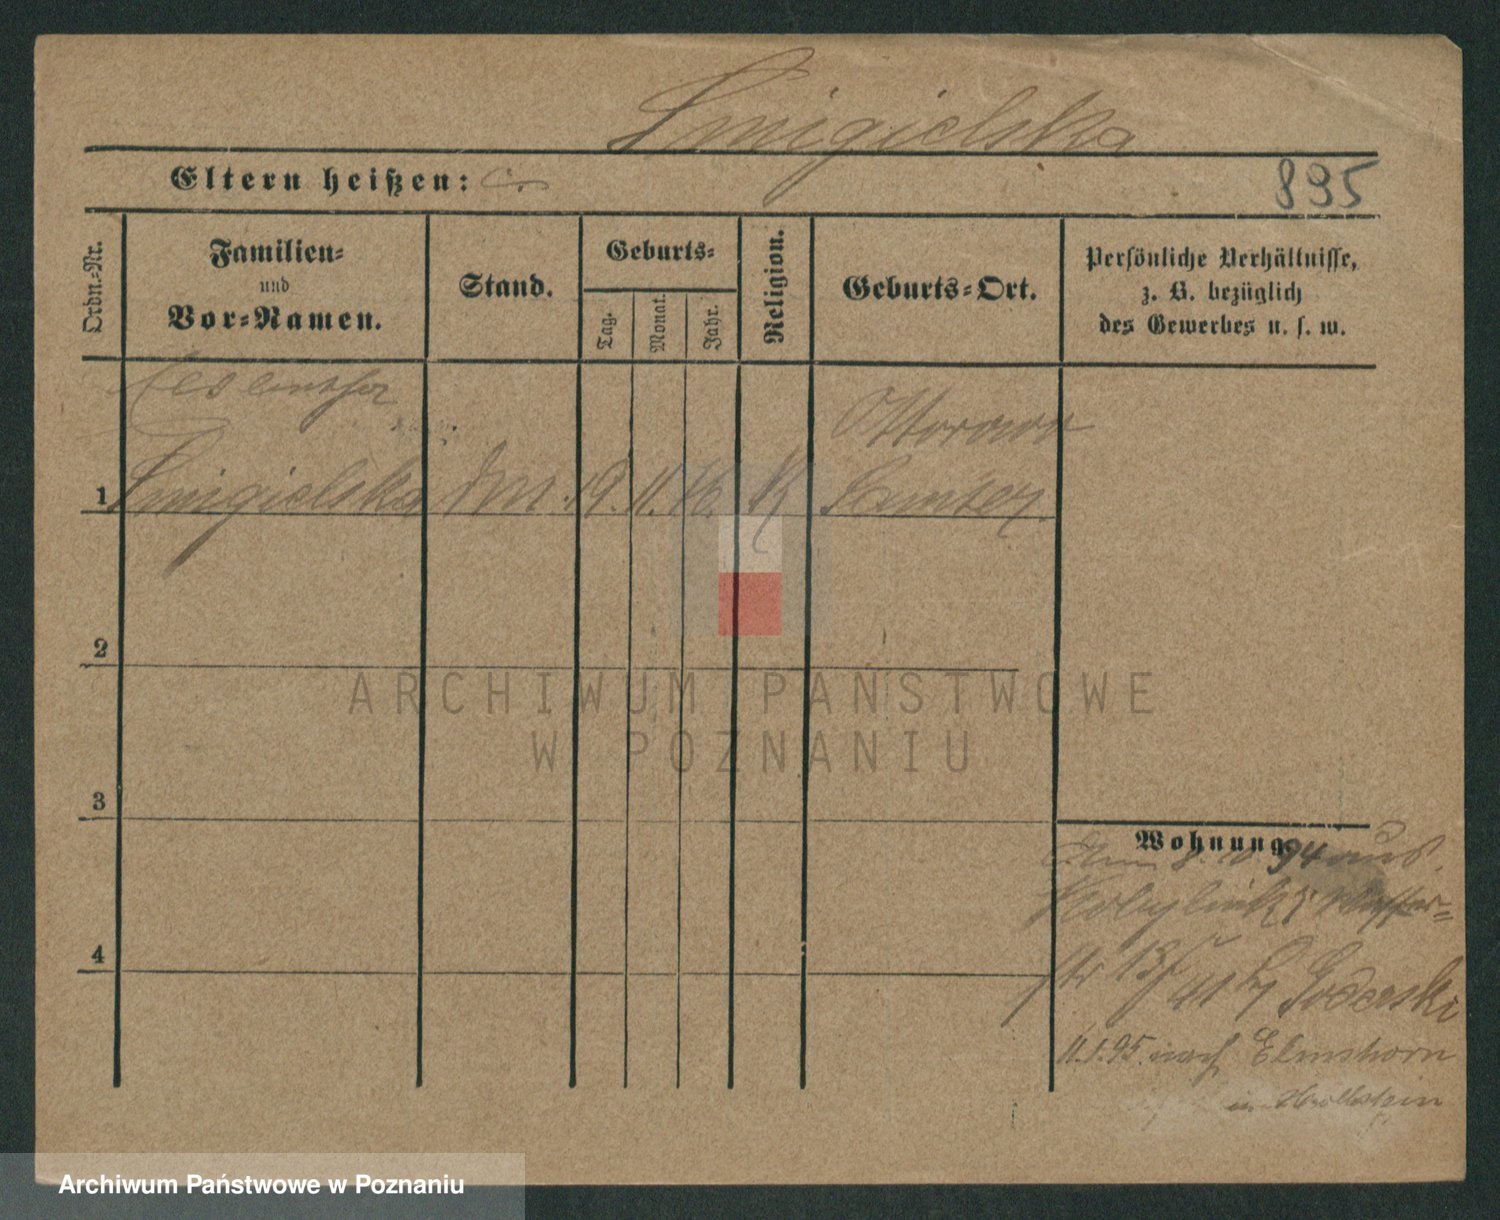 Smigielska
Eltern heißen:
895
Ordn.-Nr.
Familien-
und
Vor-Namen.
Stand.
Geburts-
Tag.
Monat.
Jahr.
Religion.
Geburts-Ort.
Persönliche Verhältnisse,
z. B. bezüglich
des Gewerbes u. s. w.
Ottorowo
1 Smigielska 19. 11. 76. K Samter.
2
3
4
Wohnung.
8. 10 94 aus
Kobylnik
str 13/ 41 by Goderski
11.1.95. nach Elmshorn
in Hollstein
ARCHIWUM PAŃSTWOWE
W POZNANIU
Archiwum Państwowe w Poznaniu